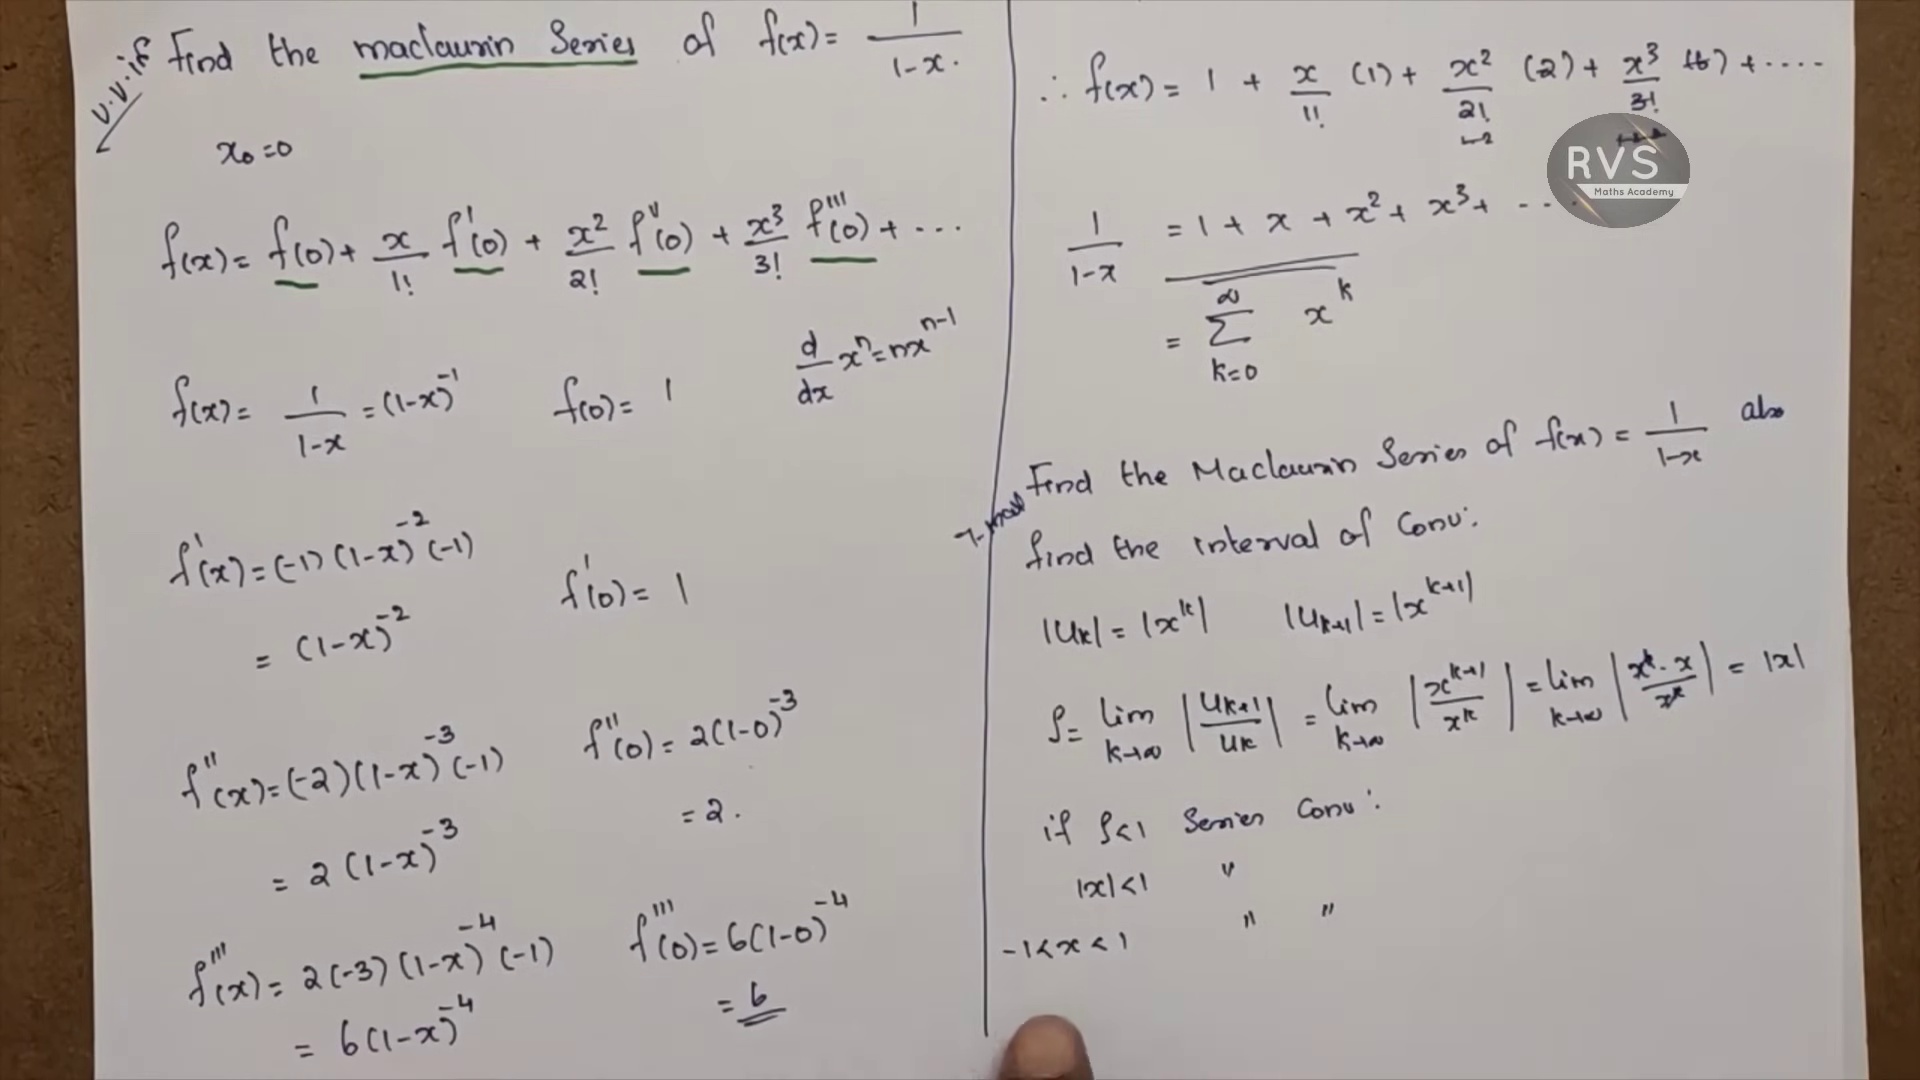 v.v.if Find the maclaurin Series of f(x) = 1/(1-x).
x₀ = 0
f(x) = f(0) + x/1! f'(0) + x²/2! f"(0) + x³/3! f'''(0) + ...
d/dx xⁿ = nxⁿ⁻¹
f(x) = 1/(1-x) = (1-x)⁻¹ f(0) = 1
f'(x) = (-1)(1-x)⁻²(-1) f'(0) = 1
= (1-x)⁻²
f''(x) = (-2)(1-x)⁻³(-1) f''(0) = 2(1-0)⁻³
= 2(1-x)⁻³ = 2.
f'''(x) = 2(-3)(1-x)⁻⁴(-1) f'''(0) = 6(1-0)⁻⁴
= 6(1-x)⁻⁴ = 6
∴ f(x) = 1 + x/1! (1) + x²/2! (2) + x³/3! (6) + ....
RVS
Maths Academy
1/(1-x) = 1 + x + x² + x³ + ...
= ∑_{k=0}^{∞} x^k
Find the Maclaurin Series of f(x) = 1/(1-x) also
find the interval of Conv:
|u_k| = |x^k| |u_{k+1}| = |x^{k+1}|
ρ = lim_{k→∞} |u_{k+1}/u_k| = lim_{k→∞} |x^{k+1}/x^k| = lim_{k→∞} |x^k·x/x^k| = |x|
if ρ<1 Series Conv:
|x|<1 "
-1<x<1 " "